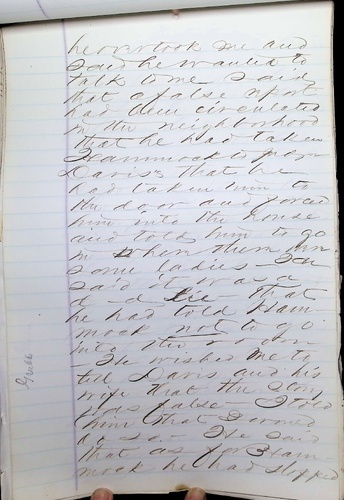 he overtook me and
said he wanted to
talk to me said
that a false report
had been circulated
in the neighborhood
that he had taken
Hammock to
Davis's that he
had taken him to
the door and forced
him into the house
and told him to go
in when there were
some ladies - He
said it was a
d-d lie - that
he had told Ham-
mock not to go
into the room
- He wished me to
tell Davis and his
wife that the story
was false - I told
him that I would
do so - He said
that as for Ham-
mock he had stopped
Grubb